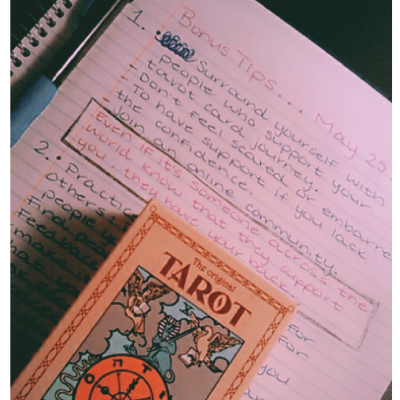 Bonus Tips.... May 25
1. - Surround yourself with
people who support your
tarot card journey.
- Don't feel scared or embarra
To have support if you lack
the confidence.
- Join an online community.
Even if it's someone across the
world know that they support
you, they have your back
2. • Practic
others
people y
Find
feedb
for
For
you
The original
TAROT